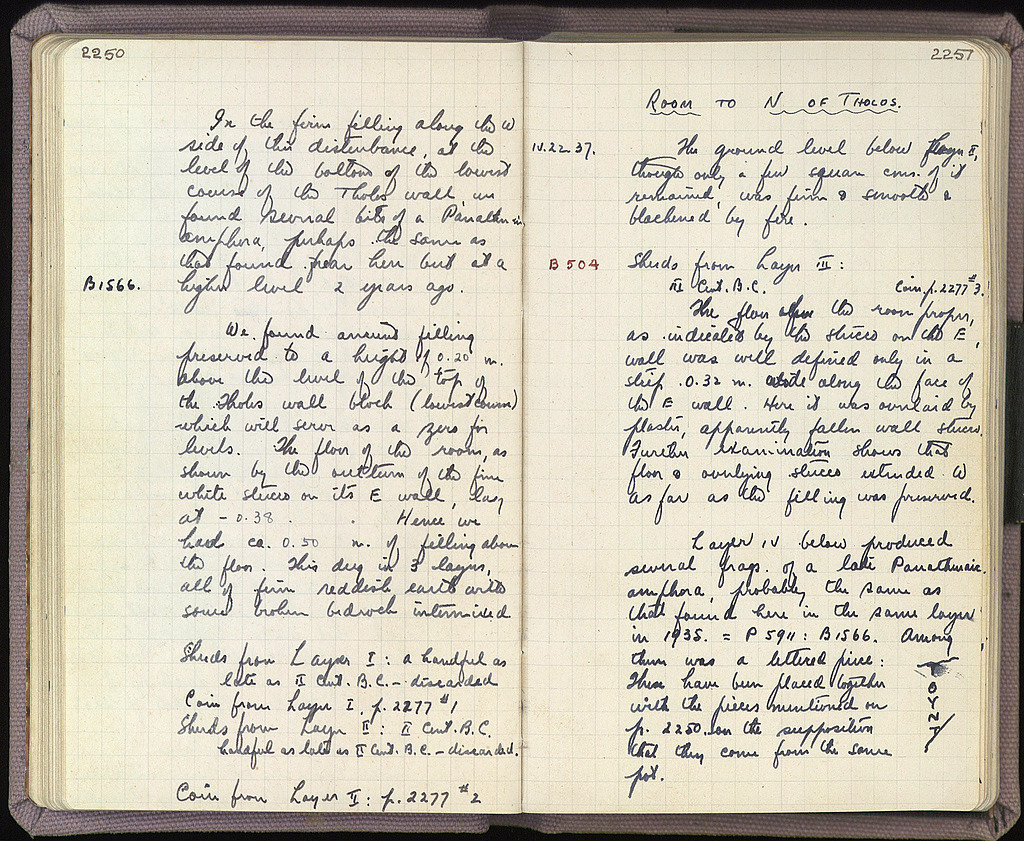 2250
In the firm filling along the W
side of this disturbance, at the
level of the bottom of the lowest
course of the Tholos wall, we
found several bits of a Panathenaic
amphora, perhaps the same as
that found near here but at a
B1566. higher level 2 years ago.
We found ancient filling
preserved to a height of 0.20 m.
above the level of the top of
the Tholos wall block (lowest course)
which will serve as a zero for
levels. The floor of the room, as
shown by the outturn of the fine
white stucco on its E wall, lay
at - 0.38. Hence we
had ca. 0.50 m. of filling above
the floor. This dug in 3 layers,
all of firm reddish earth with
some broken bedrock intermixed
Sherds from Layer I: a handful as
late as II Cent. B.C. - discarded
Coin from Layer I, p. 2277 #1
Sherds from Layer II: II Cent. B.C.
handful as late as II Cent. B.C. - discarded.
Coin from Layer II: p. 2277 #2
2251
ROOM TO N OF THOLOS.
IV.22.37. The ground level below Layer II,
though only a few square cms. of it
remained, was firm & smooth &
blackened by fire.
B 504 Sherds from Layer III:
III Cent. B.C. Coin, p. 2277 #3.
The floor of the room proper,
as indicated by the stucco on the E
wall was well defined only in a
strip 0.32 m. wide along the face of
the E wall. Here it was overlaid by
plaster, apparently fallen wall stucco.
Further examination shows that
floor & overlying stucco extended W
as far as the filling was preserved.
Layer IV below produced
several frags. of a late Panathenaic
amphora, probably the same as
that found here in the same layer
in 1935. = P 5911: B1566. Among
them was a lettered piece:
These have been placed together
with the pieces mentioned on
p. 2250 on the supposition
that they come from the same
pot.